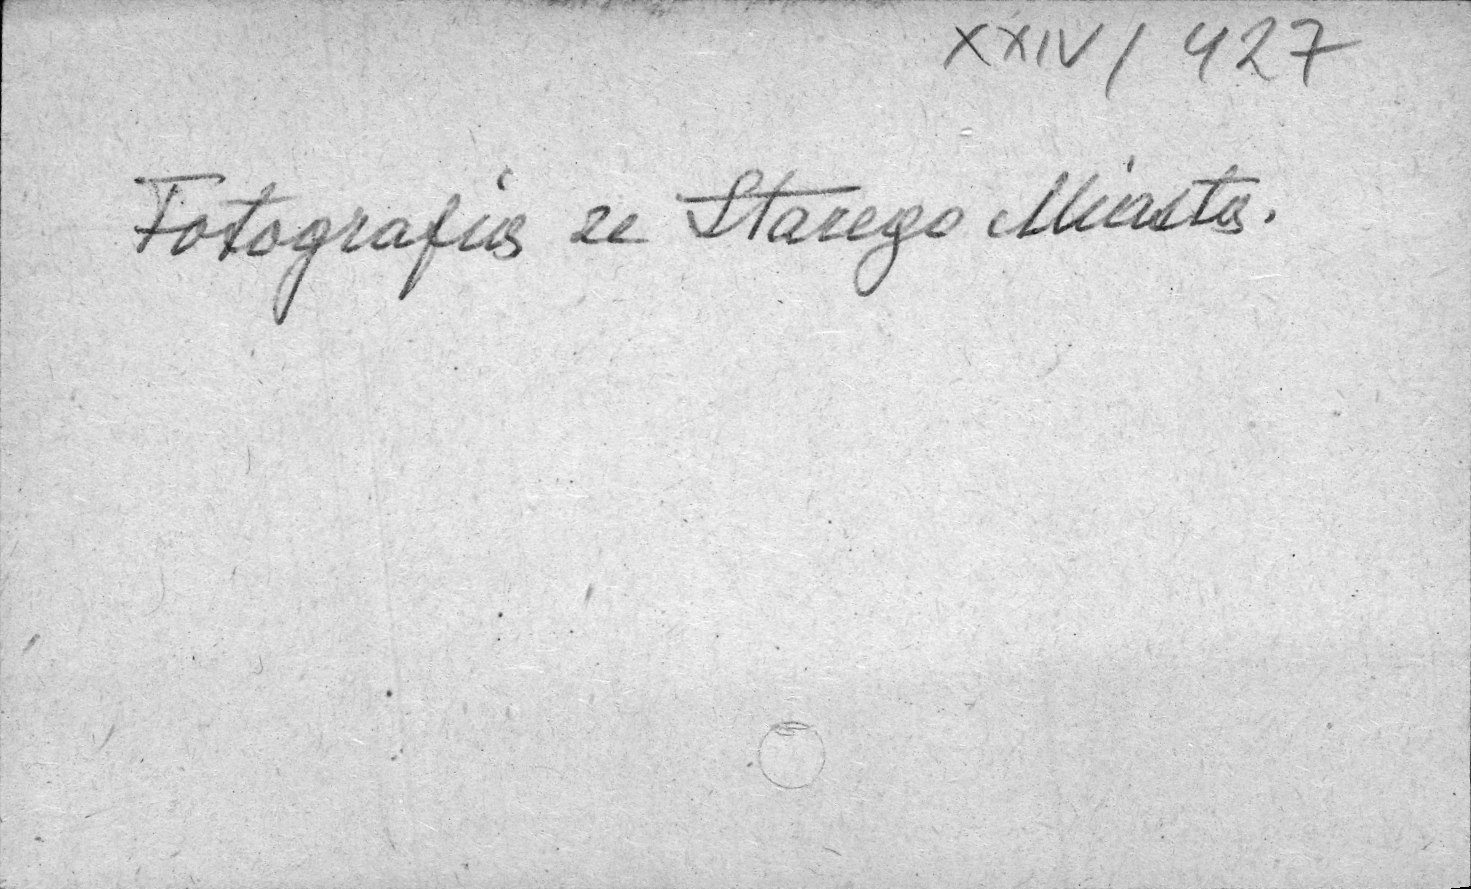 XXIV/427
Fotografia ze Starego Miasta.